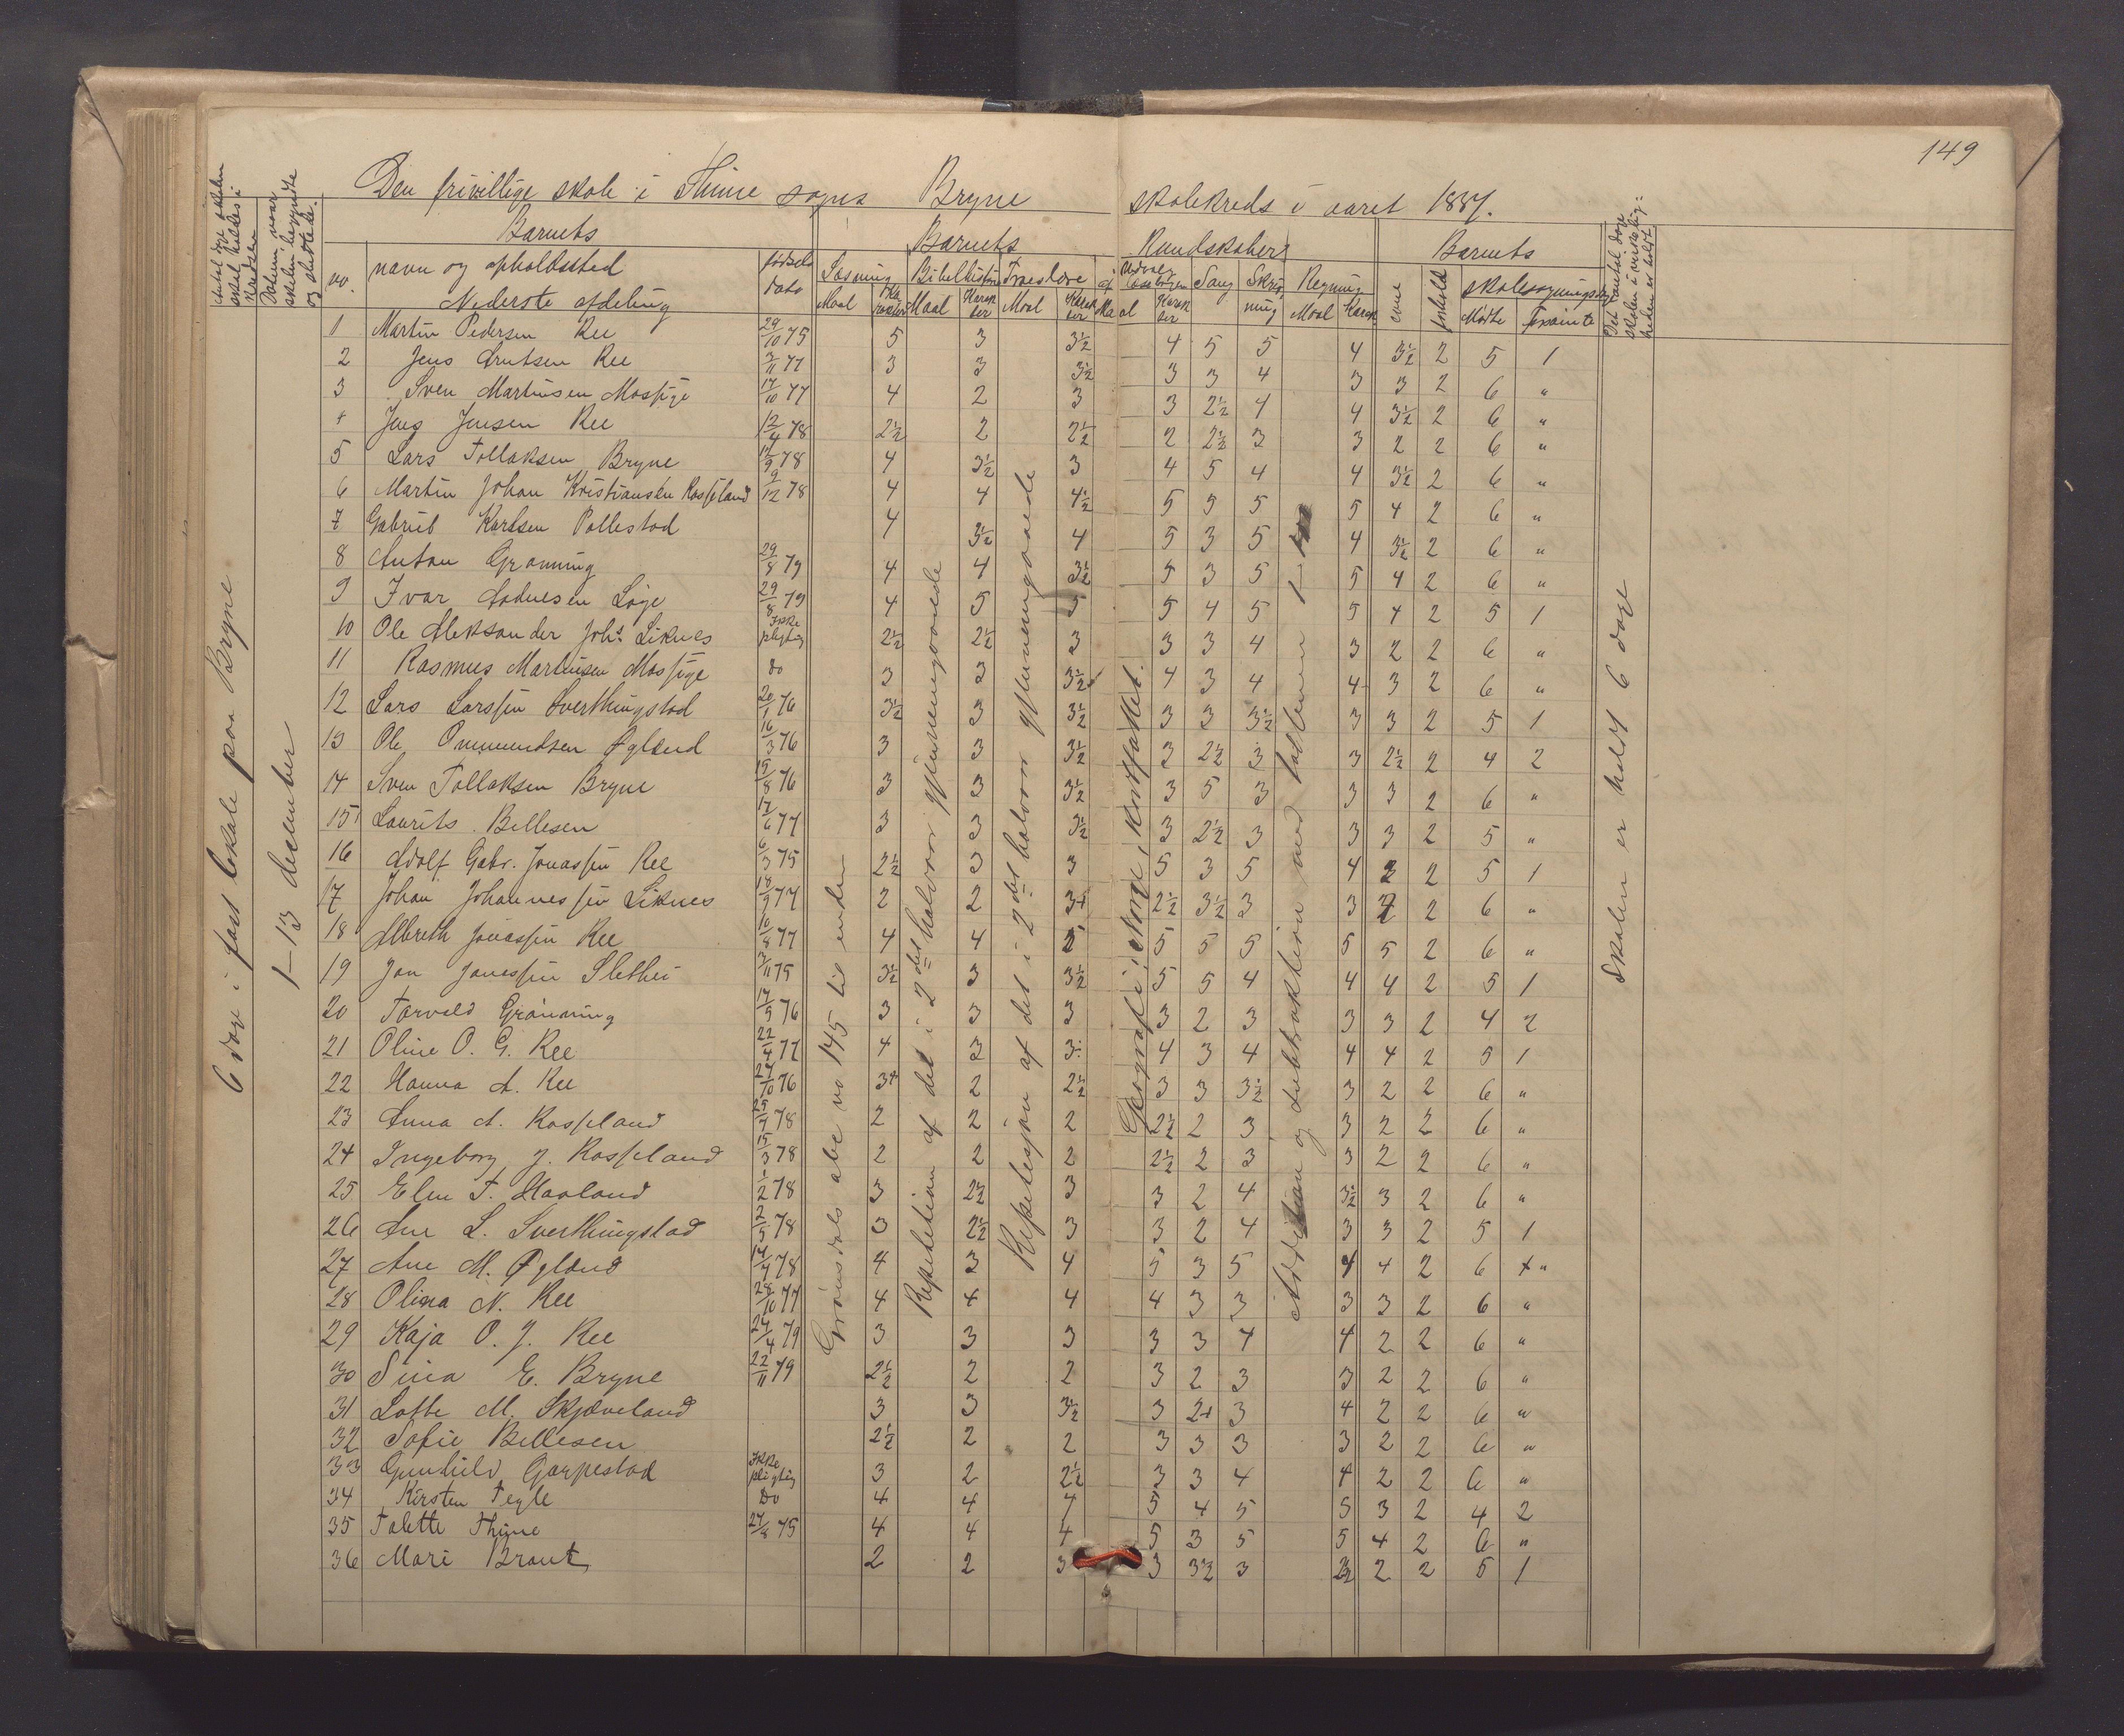 149
Den frivillige skole i Thime sogns Bryne skolekreds i aaret 1887.
Antal dage skolen skal holdes i kredsen
Datum naar skolen begyndte og sluttede.
Barnets Barnets Kundskaber Barnets
no. navn og opholdssted fødsels dato Læsning Bibelhistorie Troeslære Udvalg af Læsebogen Sang Skrivning Regning evne forhold skolesøgningsdage
Nederste afdeling Maal Karakter Maal Karakter Maal Karakter Maal Karakter Maal Karak. Mødte Forsømte
Det antal dage skolen i virkeligheden er holdt
6 dage i fast lokale paa Bryne
1–13 december
Grønsdals abc no 145 til enden
Repetition af det i 2det halvaar gjennemgaaede
Repetesjon af det i 2det halvaar gjennemgaaede
Geografi: Norge, kortfattet.
Addition og subtraktion med tallene 1–
Skolen er holdt 6 dage
1 Martin Pedersen Ree 29/10 75 5 3 3½ 4 5 5 4 3½ 2 5 1
2 Jens Arntsen Ree 3/11 77 3 3 3½ 3 3 4 3 3 2 6 "
3 Sven Martinsen Mossige 17/10 77 4 2 3 3 2½ 4 4 3½ 2 6 "
4 Jens Jensen Ree 12/4 78 2½ 2 2½ 2 2½ 3 3 2 2 6 "
5 Lars Tollaksen Bryne 17/9 78 4 3½ 3 4 5 4 4 3½ 2 6 "
6 Martin Johan Kristiansen Rosseland 9/12 78 4 4 4½ 5 5 5 5 4 2 6 "
7 Gabriel Karlsen Pollestad 4 3½ 4 5 3 5 4 3½ 2 6 "
8 Anton Grønning 29/8 79 4 4 3½ 5 3 5 5 4 2 6 "
9 Ivar Andresen Løge 29/8 79 4 5 5 5 4 5 5 4 2 5 1
10 Ole Aleksander Johs. Liknes Ikke pligtig 2½ 2½ 3 3 3 4 3 2 2 6 "
11 Rasmus Martinsen Mossige Do 3 3 3½ 4 3 4 4 3 2 6 "
12 Lars Larssen Sverthingstad 20/1 76 3½ 3 3½ 3 3 3½ 3 3 2 5 1
13 Ole Ommundsen Øglænd 16/3 76 3 3 3½ 3 2½ 3 3 2½ 2 4 2
14 Sven Tollaksen Bryne 15/8 76 3 3 3½ 3 5 3 3 3 2 6 "
15 Laurits Bellesen 12/6 77 3 3 3½ 3 2½ 3 3 3 2 5 "
16 Adolf Gabr. Jonassen Ree 6/3 75 2½ 3 3 5 3 5 4 3 2 5 1
17 Johan Johannessen Liknes 18/9 77 2 2 3+ 2½ 3½ 3 3 2 2 6 "
18 Albreth Jonassen Ree 10/8 77 4 4 5 5 5 5 5 5 2 6 "
19 Jan Janessen Slethei 3/11 75 3½ 3 3½ 5 5 4 4 4 2 5 1
20 Torvald Grønning 17/5 76 3 3 3 3 2 3 3 3 2 4 2
21 Oline O. G. Ree 22/4 77 4 3 3÷ 4 3 4 4 4 2 5 1
22 Hanna A. Ree 27/10 76 3+ 2 2½ 3 3 3½ 3 2 2 6 "
23 Anna A. Rosseland 25/7 78 2 2 2 2½ 2 3 3 2 2 6 "
24 Ingeborg J. Rosseland 15/3 78 2 2 2 2½ 2 3 3 2 2 6 "
25 Elen T. Haaland 1/2 78 3 2½ 3 3 2 4 3½ 3 2 6 "
26 Ane L. Sverthingstad 2/5 78 3 2½ 3 3 2 4 3 3 2 5 1
27 Ane M. Øglænd 14/7 78 4 3 4 5 3 5 4 4 2 6 "
28 Olina N. Ree 28/10 77 4 4 4 4 3 3 3 3 2 6 "
29 Kaja O. J. Ree 24/4 79 3 3 3 3 3 4 4 2 2 6 "
30 Sina E. Bryne 22/11 79 2½ 2 2 3 2 3 3 2 2 6 "
31 Lotte M. Skjæveland 3 3 3½ 3 2+ 3 4 2 2 6 "
32 Sofie Bellesen 2½ 2 2 3 3 3 3 2 2 6 "
33 Gunhild Garpestad Ikke pligtig 3 2 2½ 3 3 4 4 2 2 6 "
34 Kirsten Tegle Do 4 4 4 5 4 5 5 3 2 4 2
35 Talette Thime 27/8 75 4 4 4 5 3 5 5 4 2 6 "
36 Mari Braut 2 2 3 3 3½ 3 2½ 2 2 5 1